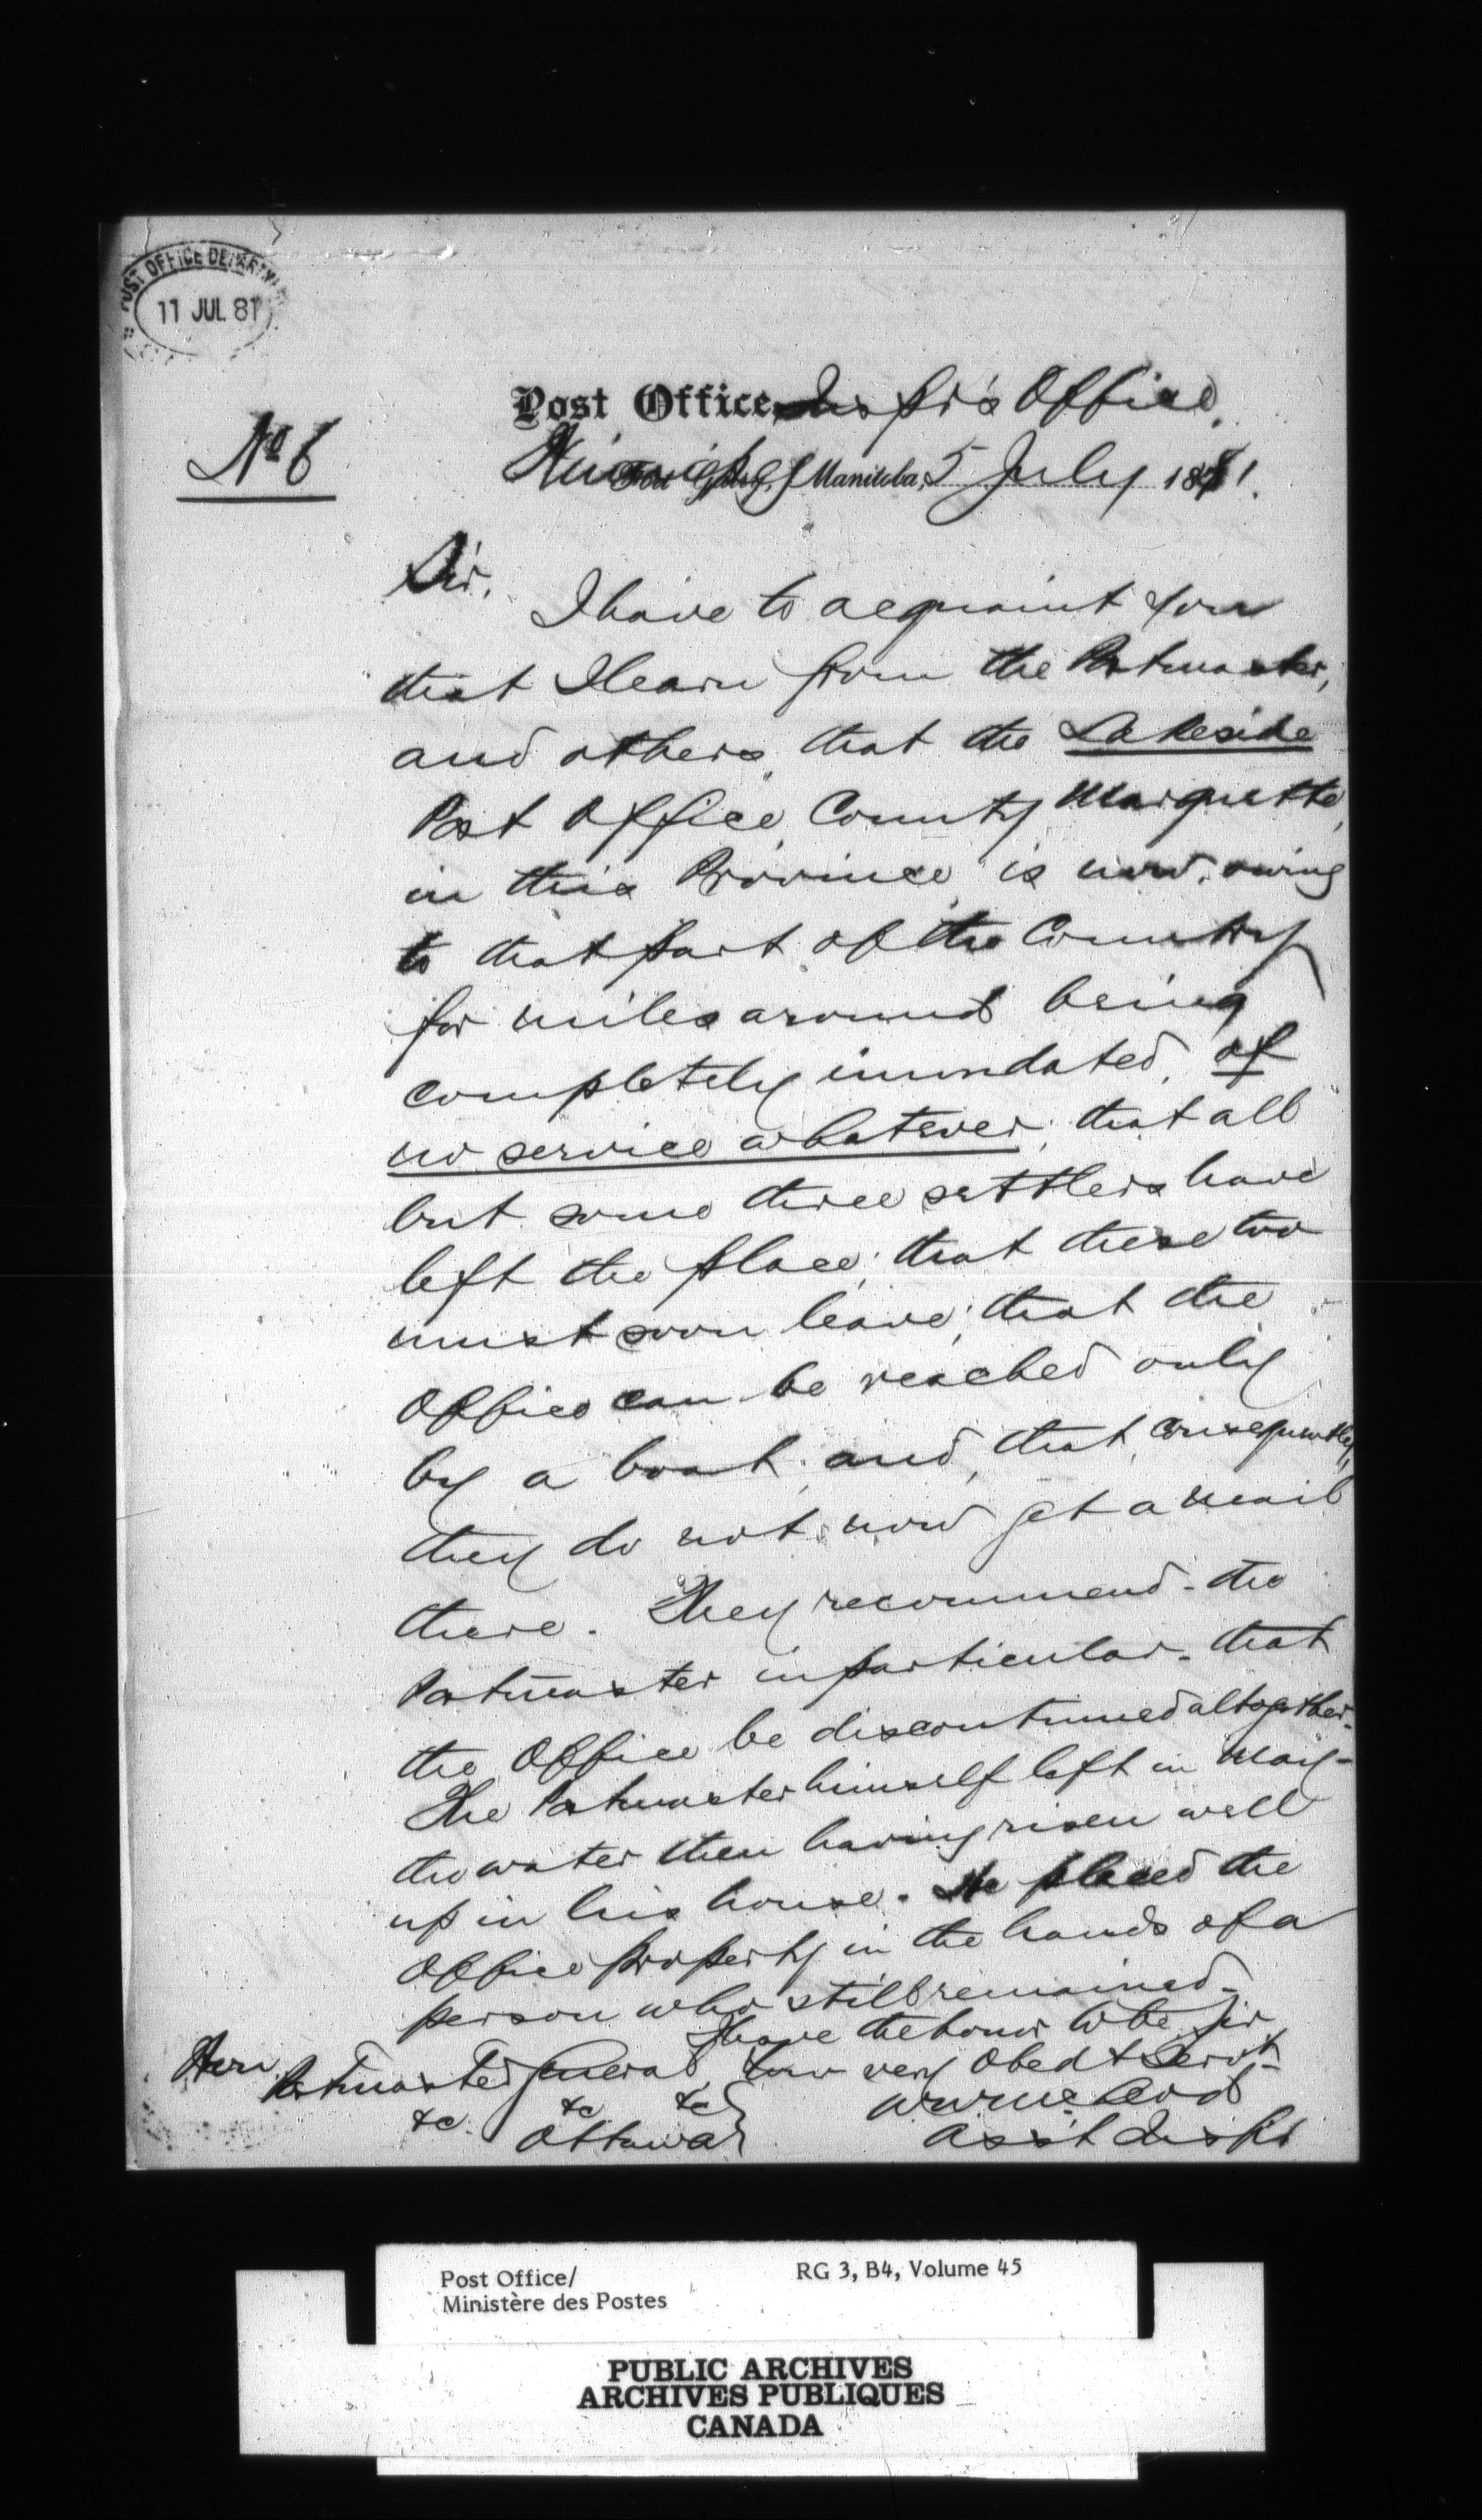 POST OFFICE DEPARTM
11 JUL 81
No 6
Post Office Inspr's Office,
Winnipeg, Manitoba, 5 July 1881.
Sir,
I have to acquaint you
that I learn from the Postmaster,
and others, that the Lakeside
Post Office, County Marquette,
in this Province, is now, owing
to that part of the Country
for miles around being
completely inundated, of
no service whatever; that all
but some three settlers have
left the place; that these too
must soon leave; that the
Office can be reached only
by a boat; and, that, consequently,
they do not now get a mail
there. They recommend - the
Postmaster in particular - that
the Office be discontinued altogether.
The Postmaster himself left in May -
the water then having risen well
up in his house. He placed the
Office property in the hands of a
person who still remained.
I have the honor to be, Sir,
Hon. Postmaster General Your very Obedt Servt
&c &c &c
Ottawa Asst Inspr
Post Office/
Ministère des Postes
RG 3, B4, Volume 45
PUBLIC ARCHIVES
ARCHIVES PUBLIQUES
CANADA